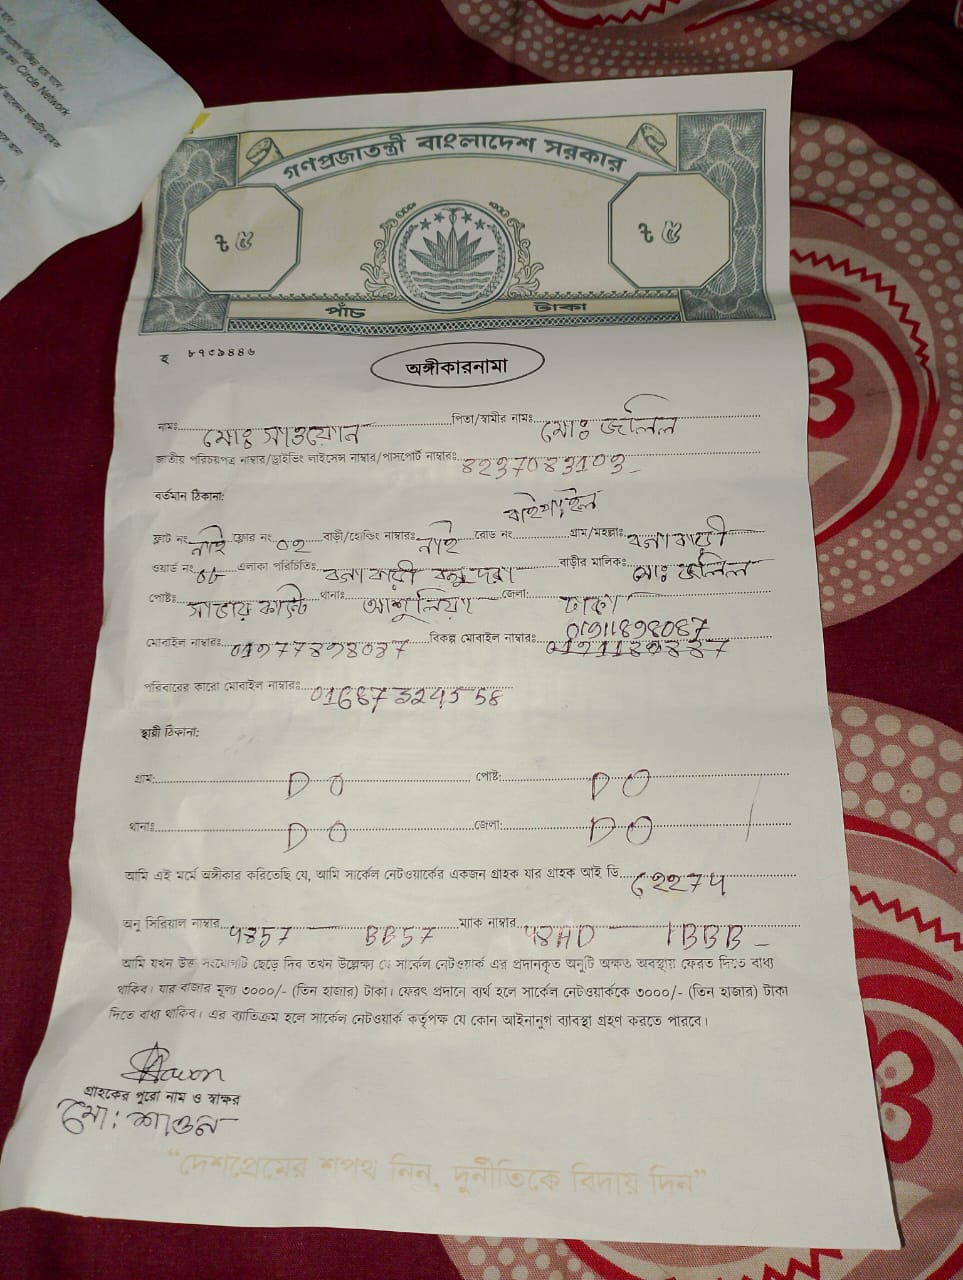 Circle Network
গণপ্রজাতন্ত্রী বাংলাদেশ সরকার
৳ ৫ ৳ ৫
পাঁচ টাকা
হ ৮৭৩৯৪৪৬
অঙ্গীকারনামা
নামঃ মোঃ সাওয়োন পিতা/স্বামীর নামঃ মোঃ জলিল
জাতীয় পরিচয়পত্র নাম্বার/ড্রাইভিং লাইসেন্স নাম্বার/পাসপোর্ট নাম্বারঃ
বর্তমান ঠিকানা:
বাইপাইল
ফ্লাট নং নাই ফ্লোর নং ০২ বাড়ী/হোল্ডিং নাম্বারঃ নাই রোড নং গ্রাম/মহল্লাঃ
ওয়ার্ড নং এলাকা পরিচিতিঃ বাড়ীর মালিকঃ মোঃ জলিল
পোষ্টঃ থানাঃ আশুলিয়া জেলা: ঢাকা
01911898087
মোবাইল নাম্বারঃ বিকল্প মোবাইল নাম্বারঃ
পরিবারের কারো মোবাইল নাম্বারঃ
স্থায়ী ঠিকানা:
গ্রাম: D O পোষ্ট: D O
থানাঃ D O জেলা: D O
আমি এই মর্মে অঙ্গীকার করিতেছি যে, আমি সার্কেল নেটওয়ার্কের একজন গ্রাহক যার গ্রাহক আই ডি
অনু সিরিয়াল নাম্বার 4857 BB57 ম্যাক নাম্বার 48AD 1BBB
আমি যখন উক্ত সংযোগটি ছেড়ে দিব তখন উল্লেক্ষ্য যে সার্কেল নেটওয়ার্ক এর প্রদানকৃত অনুটি অক্ষত অবস্থায় ফেরত দিতে বাধ্য
থাকিব। যার বাজার মূল্য ৩০০০/- (তিন হাজার) টাকা। ফেরৎ প্রদানে ব্যর্থ হলে সার্কেল নেটওয়ার্ককে ৩০০০/- (তিন হাজার) টাকা
দিতে বাধ্য থাকিব। এর ব্যতিক্রম হলে সার্কেল নেটওয়ার্ক কর্তৃপক্ষ যে কোন আইনানুগ ব্যাবস্থা গ্রহণ করতে পারবে।
গ্রাহকের পুরো নাম ও স্বাক্ষর
মো: শাওন
“দেশপ্রেমের শপথ নিন, দুর্নীতিকে বিদায় দিন”